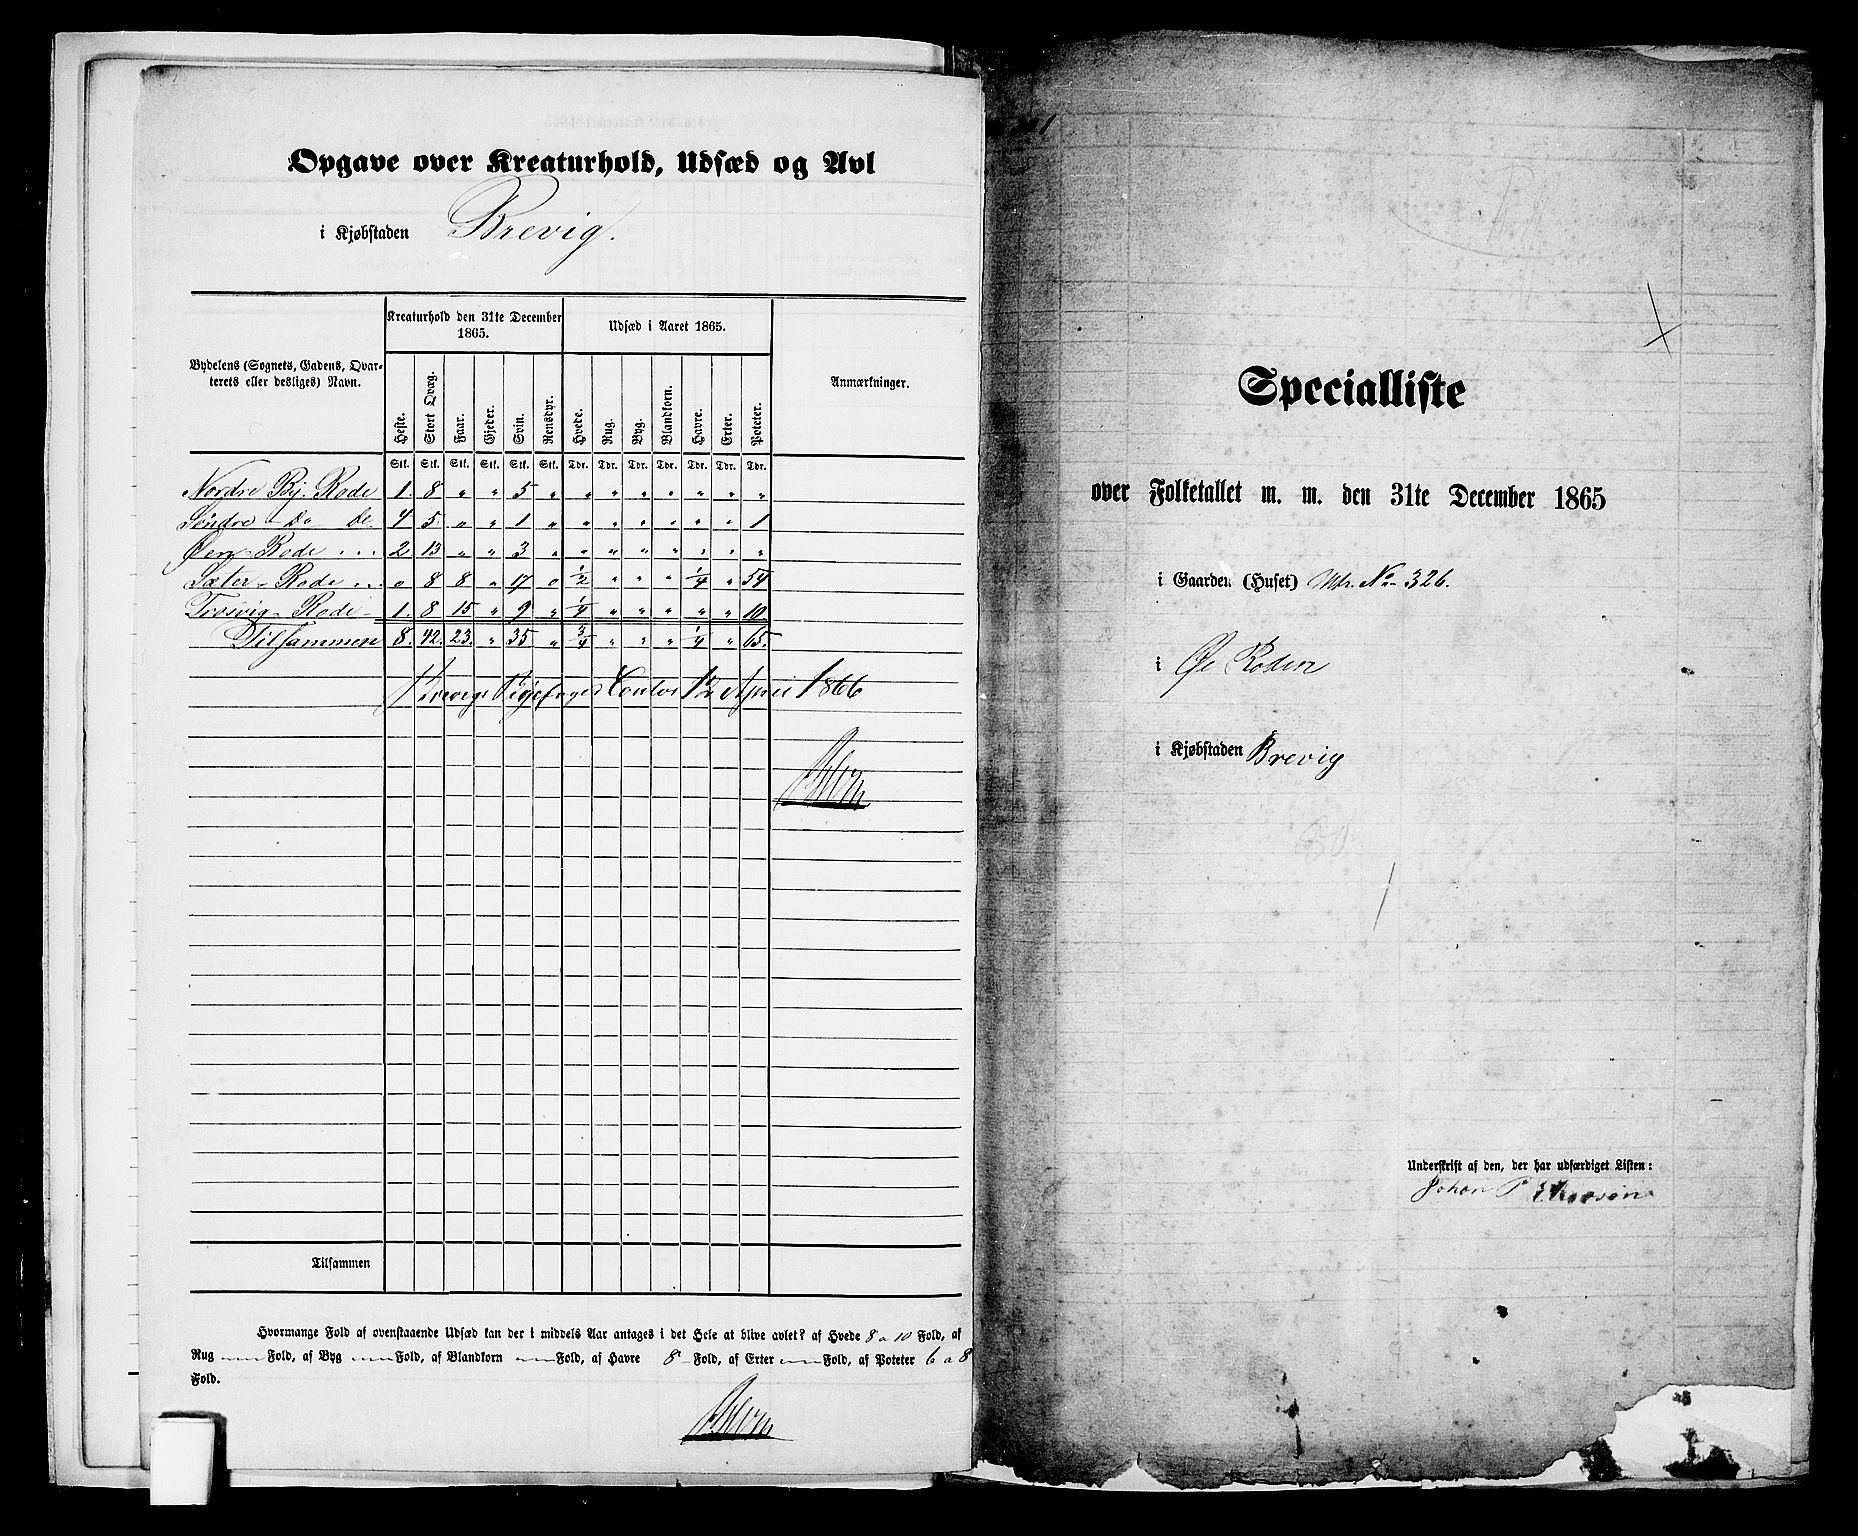 Opgave over Kreaturhold, Udsæd og Avl
i Kjøbstaden Brevig.
Bydelens (Sognets, Gadens, Qvarterets eller desliges) Navn.
Kreaturhold den 31te December 1865.
Udsæd i Aaret 1865.
Anmærkninger.
Heste. Stort Qvæg. Faar. Gjeder. Svin. Rensdyr. Hvede. Rug. Byg. Blandkorn. Havre. Erter. Poteter.
Stk. Stk. Stk. Stk. Stk. Stk. Tdr. Tdr. Tdr. Tdr. Tdr. Tdr. Tdr.
Nordre By-Rode 1. 8 " " 5 " " " " " " " "
Søndre - Do - De 4 5 " " 1 " " " " " " " 1
Øen-Rode ... 2 13 " " 3 " " " " " " " "
Sæter-Rode ... " 8 8 " 17 " 1/2 " " " 1/4 " 54
Trosvig-Rode - 1. 8 15 " 9 " 1/4 " " " " " 10
Tilsammen 8. 42. 23. " 35 " 3/4 " " " 1/4 " 65.
Brevigs Byfogedcontor 12 April 1866
Tilsammen
Hvormange Fold af ovenstaaende Udsæd kan der i middels Aar antages i det Hele at blive avlet? af Hvede 8 a 10 Fold, af
Rug — Fold, af Byg — Fold, af Blandkorn — Fold, af Havre 8 - Fold, af Erter — Fold, af Poteter 6 a 8
Fold.
1
Specialliste
over Folketallet m. m. den 31te December 1865
i Gaarden (Huset) Mtr. No 326.
i Øe Roden
i Kjøbstaden Brevig
Underskrift af den, der har udfærdiget Listen:
Johan P